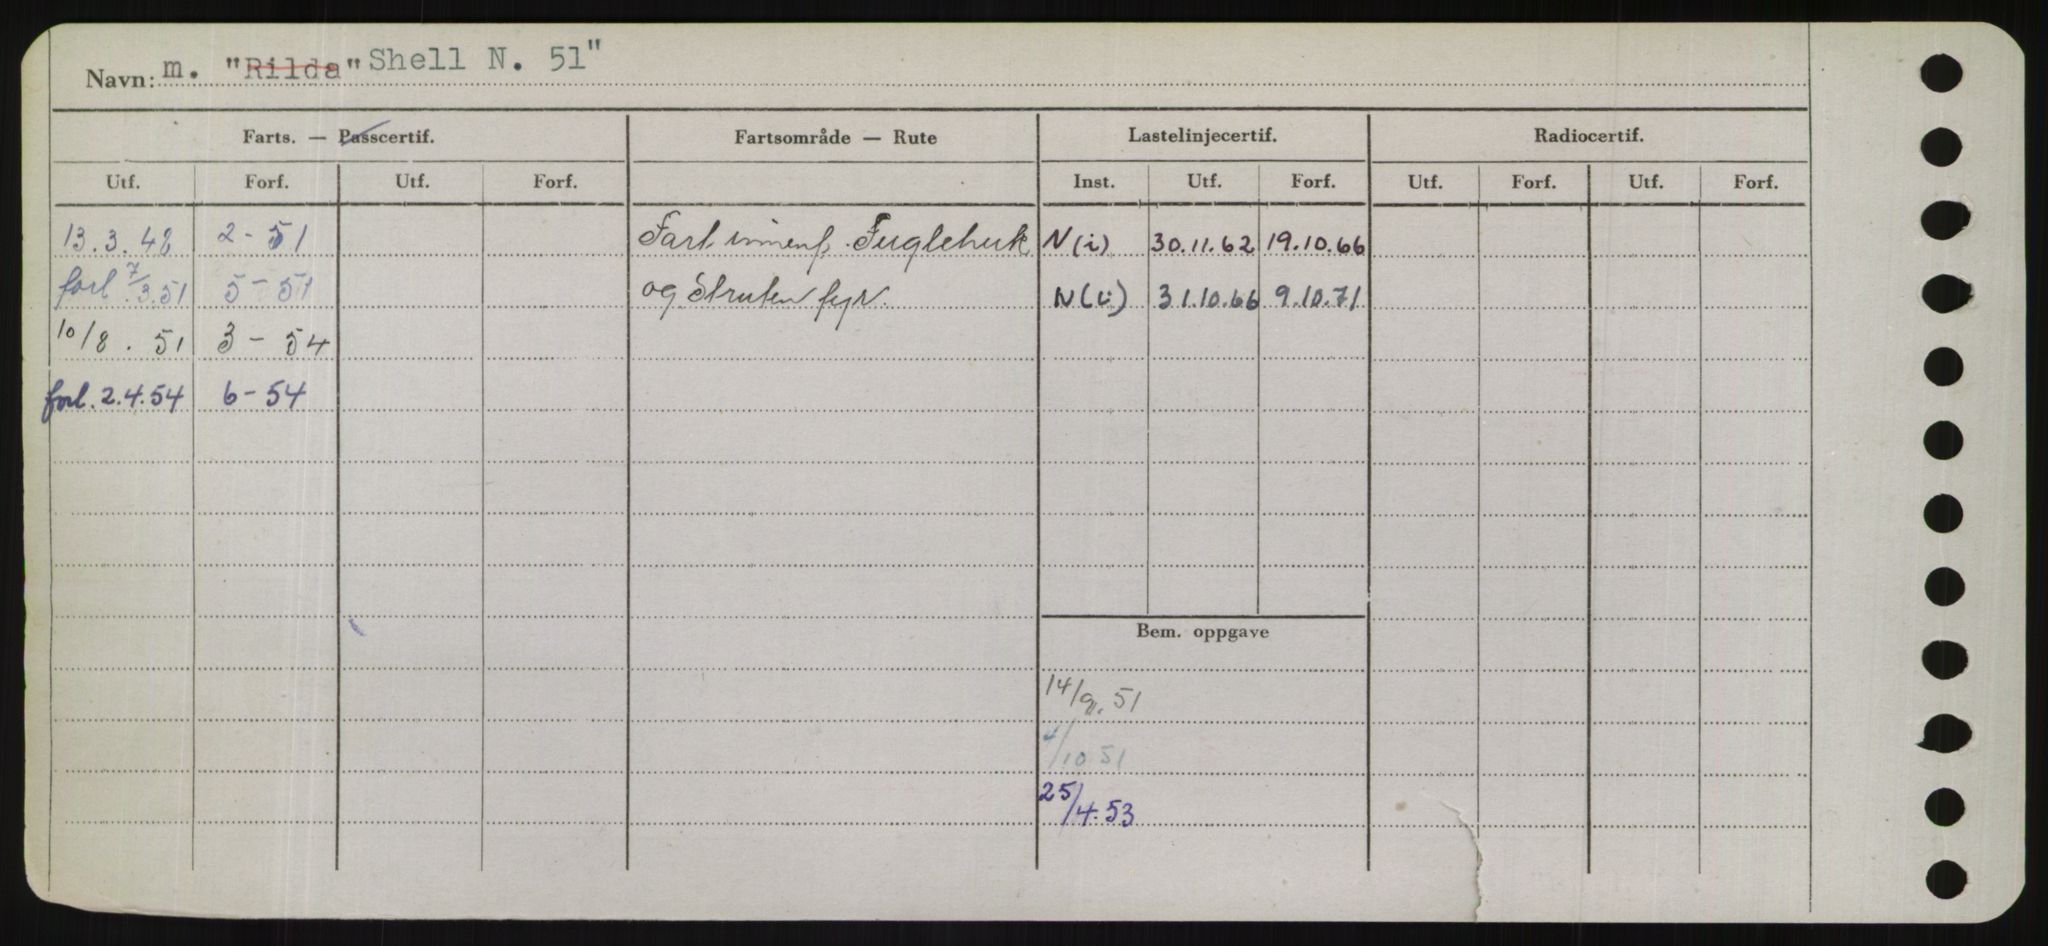 Navn: m. "Rilda" Shell N. 51"
Farts. — Passcertif. Fartsområde — Rute Lastelinjecertif. Radiocertif.
Utf. Forf. Utf. Forf. Inst. Utf. Forf. Utf. Forf. Utf. Forf.
13.3.48 2-51 Fart innenf. Fuglehuk N(i) 30.11.62 19.10.66
forl 7/3.51 5-51 og Struten fyr. N(i) 31.10.66 9.10.71
10/8. 51 3-54
forl. 2.4.54 6-54
Bem. oppgave
14/9. 51
/10 51
25/4.53